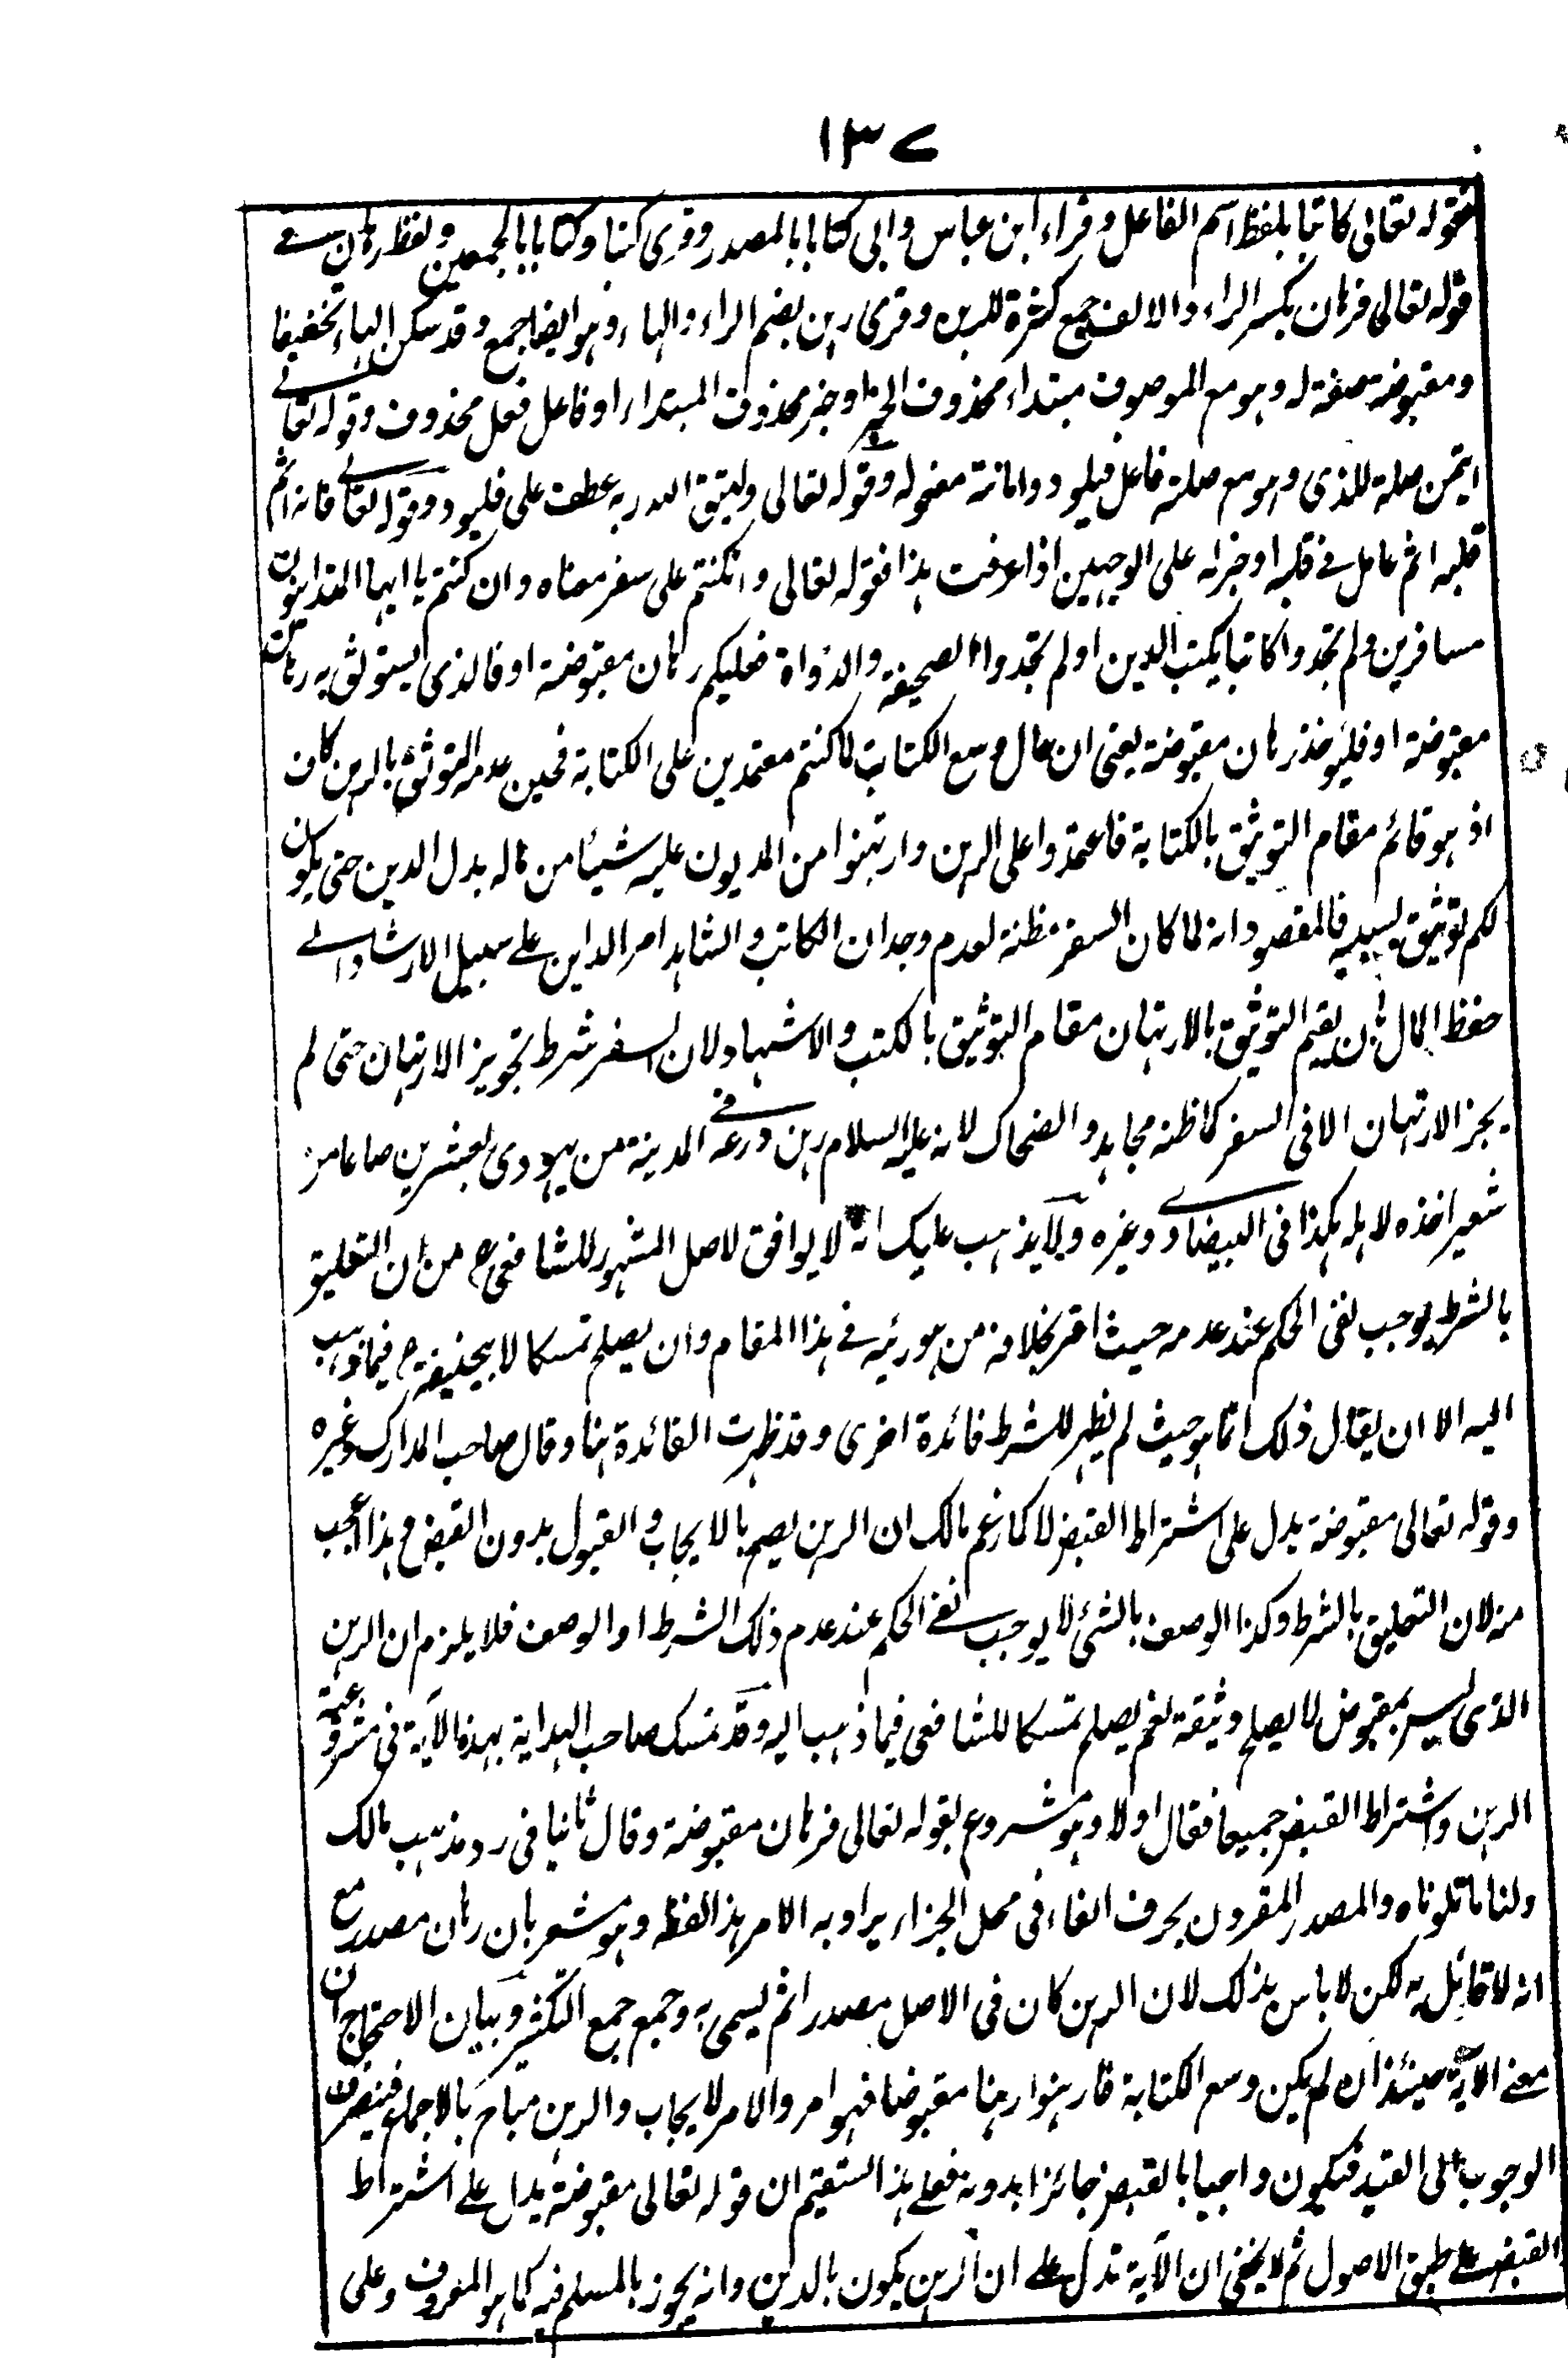 ١٣٧
فقوله تعالى كاتبا بلفظ اسم الفاعل وقراء ابن عباس وابى كتابا بالمصدر وقرى كتبا وكتابا بالجمعين ولفظ رهان فى
قوله تعالى فرهان بكسر الراء والالف جمع كثرة للرهن وقرى رهن بضم الراء والهاء وهو ايضا جمع وقد سكن الهاء تخفيفا
ومقبوضة صفة له وهو مع الموصوف مبتداء محذوف الخبر او خبر محذوف المبتداء او فاعل فعل محذوف وقوله تعالى
ايتمن صلة للذى وهو مع صلته فاعل فليود وامانته مفعوله وقوله تعالى وليتق الله ربه عطف على فليود وقوله تعالى فانه اثم
قلبه اثم عامل فى قلبه او خبر له على الوجهين اذا عرفت هذا فقوله تعالى وان كنتم على سفر معناه وان كنتم يا ايها المتداينون
مسافرين ولم تجدوا كاتبا يكتب الدين او لم تجدوا الصحيفة والدواة فعليكم رهان مقبوضة او فالذى يستوثق به رهان
مقبوضة او فليوخذ رهان مقبوضة يعنى ان حال وسع الكتابة لما كنتم معتمدين على الكتابة فحين عدمه التوثق بالرهن كان
اذ هو قائم مقام التوثيق بالكتابة فاعتمدوا على الرهن وارتهنوا من المديون عليه شيئا من ماله بدل الدين حتى يكون
لكم توثيق بسببه فالمقصود انه لما كان السفر مظنة لعدم وجدان الكاتب والشاهد امر الداين على سبيل الارشاد الى
حفظ المال بان يقيم التوثيق بالارتهان مقام التوثيق بالكتب والاشهاد لا ان السفر شرط تجويز الارتهان حتى لم
يجز الارتهان الا فى السفر كما ظنه مجاهد والضحاك لانه عليه السلام رهن درعه فى المدينة من يهودى بعشرين صاعا من
شعير اخذه لاهله هكذا فى البيضاوى وغيره ولا يذهب عليك انه لا يوافق لاصل المشهور للشافعى رح من ان التعليق
بالشرط يوجب نفى الحكم عند عدمه حيث اقر بخلافه من هو رئيه فى هذا المقام وان يصلح تمسكا لابيحنيفة رح فيما ذهب
اليه الا ان يقال ذلك انما هو حيث لم يظهر للشرط فائدة اخرى وقد ظهرت الفائدة هنا وقال صاحب المدارك وغيره
وقوله تعالى مقبوضة يدل على اشتراط القبض لا كما زعم مالك ان الرهن يصح بالايجاب والقبول بدون القبض وهذا اعجب
منه لان التعليق بالشرط وكذا الوصف بالشئ لا يوجب نفى الحكم عند عدم ذلك الشرط او الوصف فلا يلزم ان الرهن
الذى ليس بمقبوض لا يصلح وثيقة نعم يصلح تمسكا للشافعى فيما ذهب اليه وقد تمسك صاحب الهداية بهذه الآية فى مشروعية
الرهن واشتراط القبض جميعا فقال اولا وهو مشروع لقوله تعالى فرهان مقبوضة وقال ثانيا فى رد مذهب مالك
ولنا ما تلوناه والمصدر المقرون بحرف الفاء فى محل الجزاء يراد به الامر هذا لفظه وهو مشعر بان رهان مصدر مع
انه لا قائل به لكن لا باس بذلك لان الرهن كان فى الاصل مصدرا ثم يسمى به وجمع جمع التكثير وبيان الاحتجاج ان
معنى الآية حينئذ ان لم يكن وسع الكتابة فارهنوا رهنا مقبوضا فهو امر والامر لايجاب والرهن مباح بالاجماع فينصرف
الوجوب الى القيد فيكون واجبا بالقبض جائزا بدونه فعلى هذا استقيم ان قوله تعالى مقبوضة يدل على اشتراط
القبض على طبق الاصول ثم لا يخفى ان الآية تدل على ان الرهن يكون بالدين وانه يجوز بالمسلم فيه كما هو المعروف وعلى